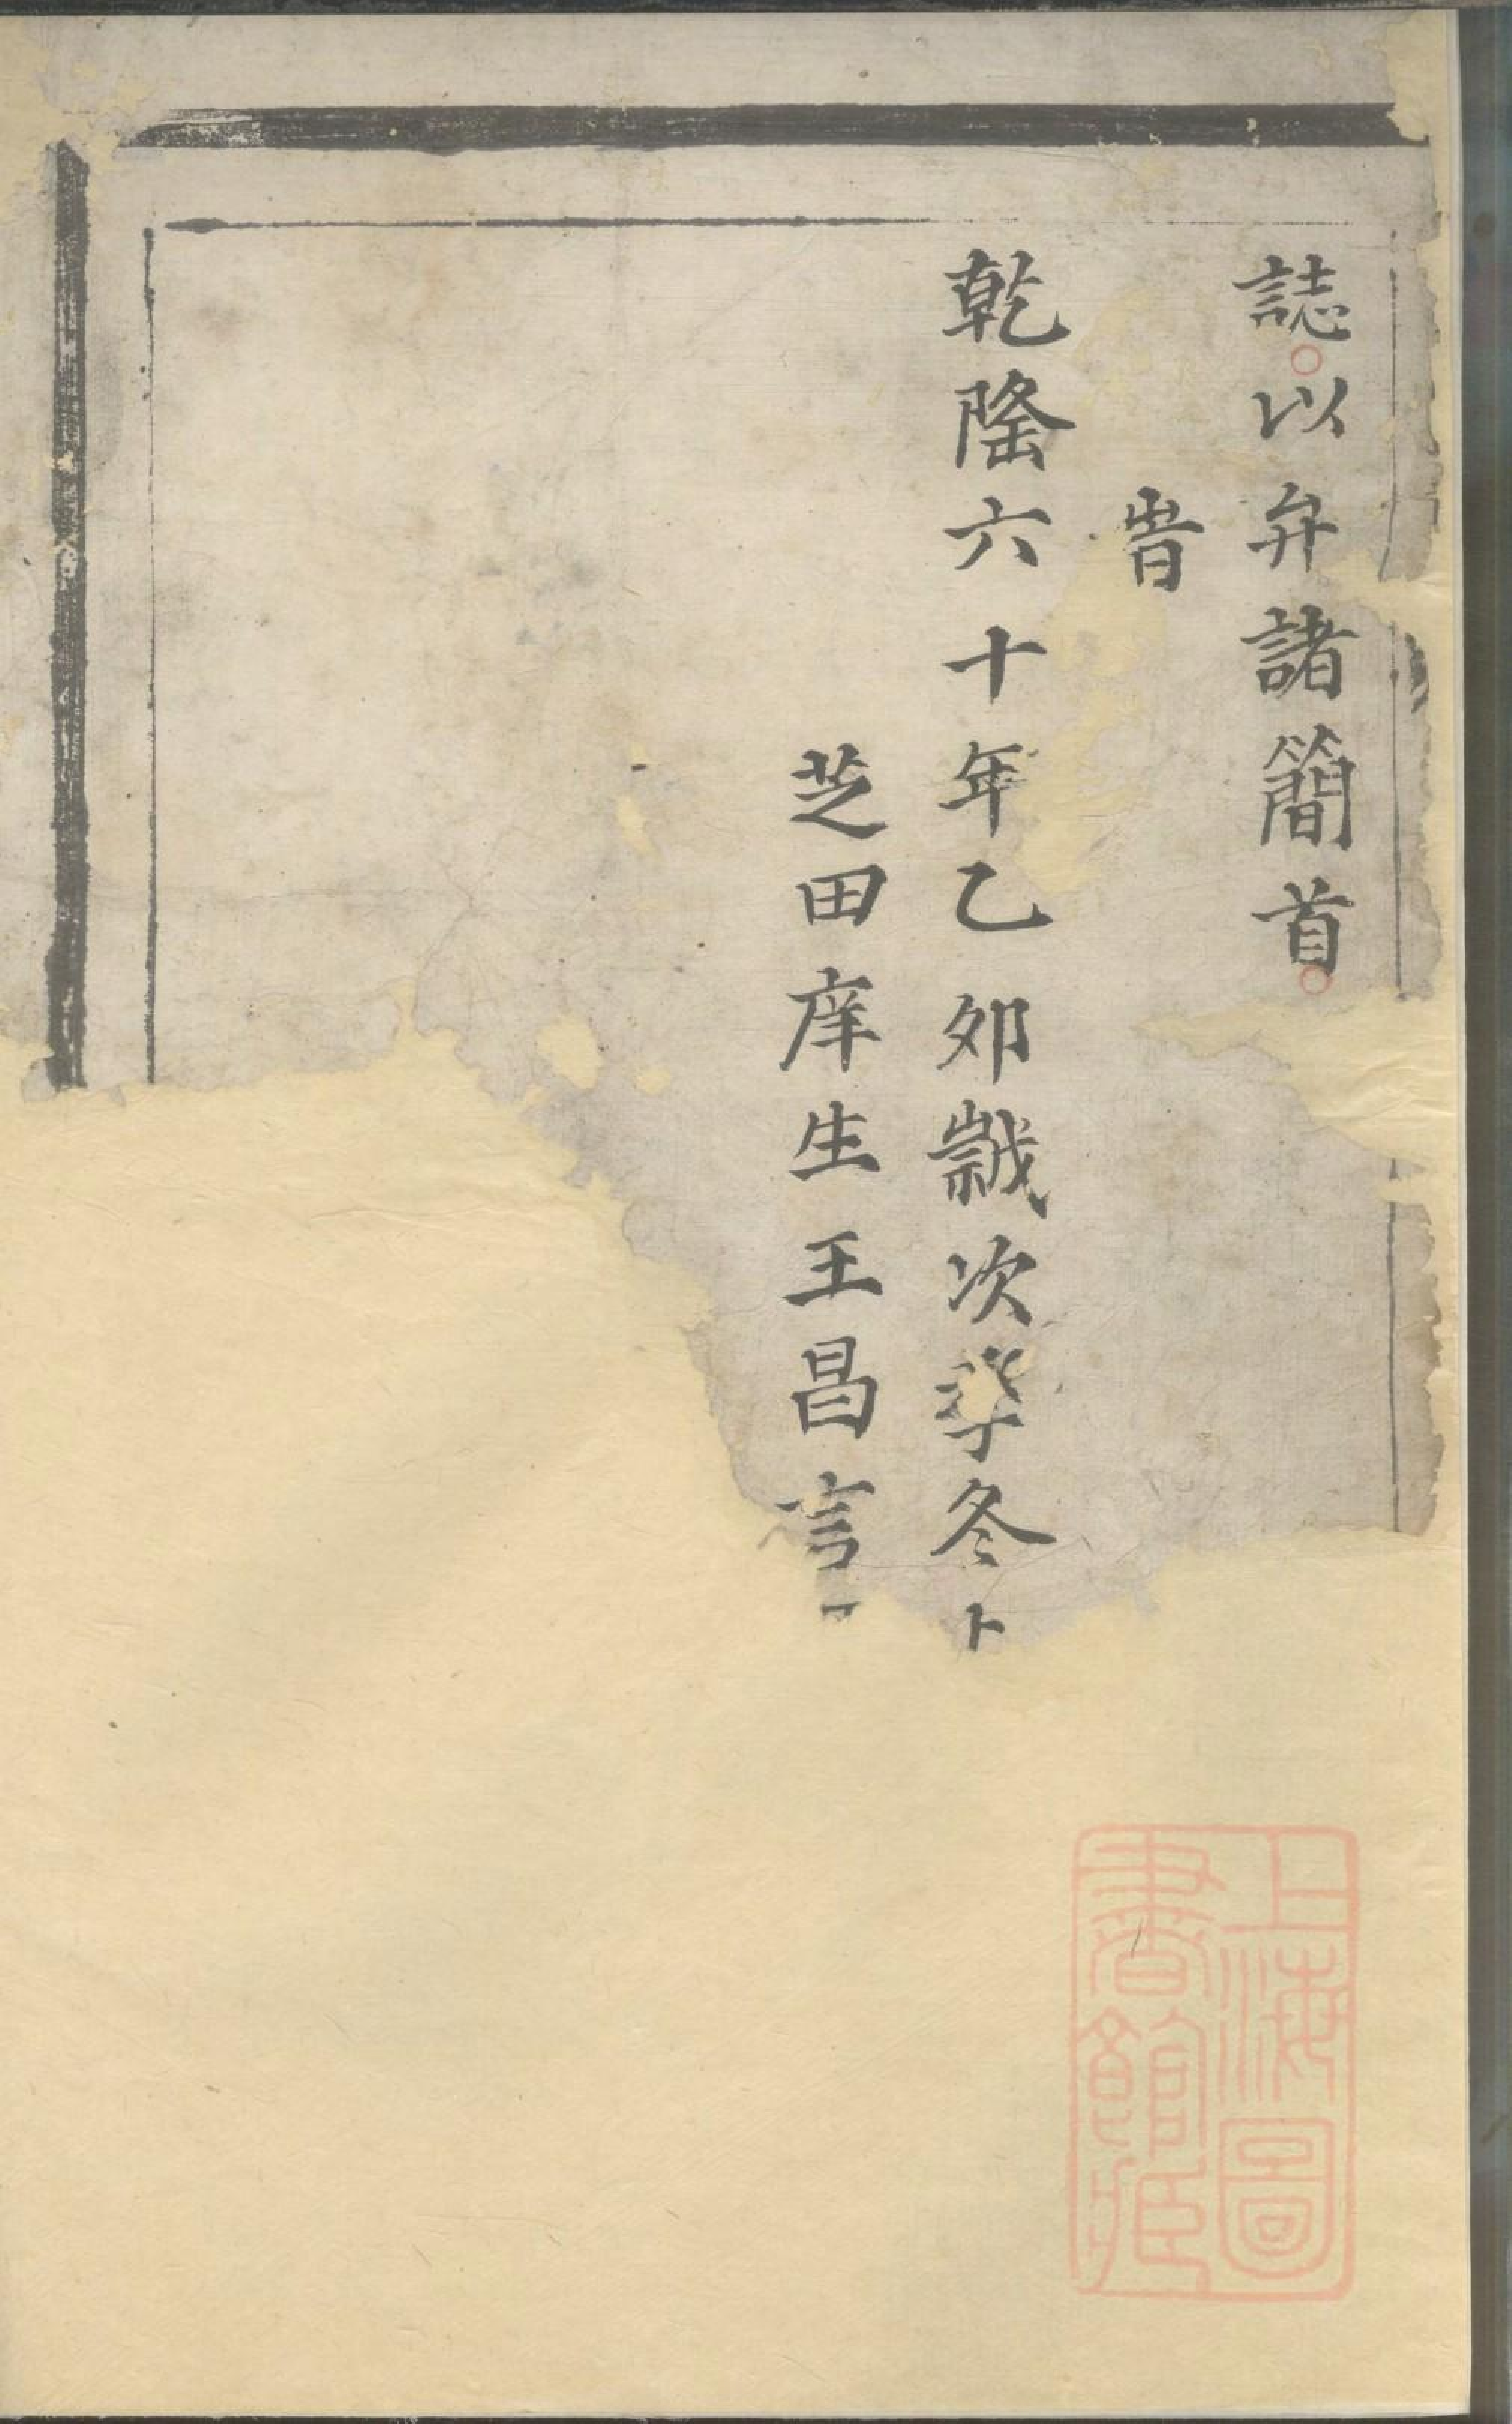 誌。以弁諸簡首。
旹
乾隆六十年乙夘歲次季冬
芝田庠生王昌言
上海圖
書館藏